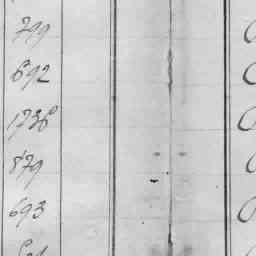 799
692
1736
879
693